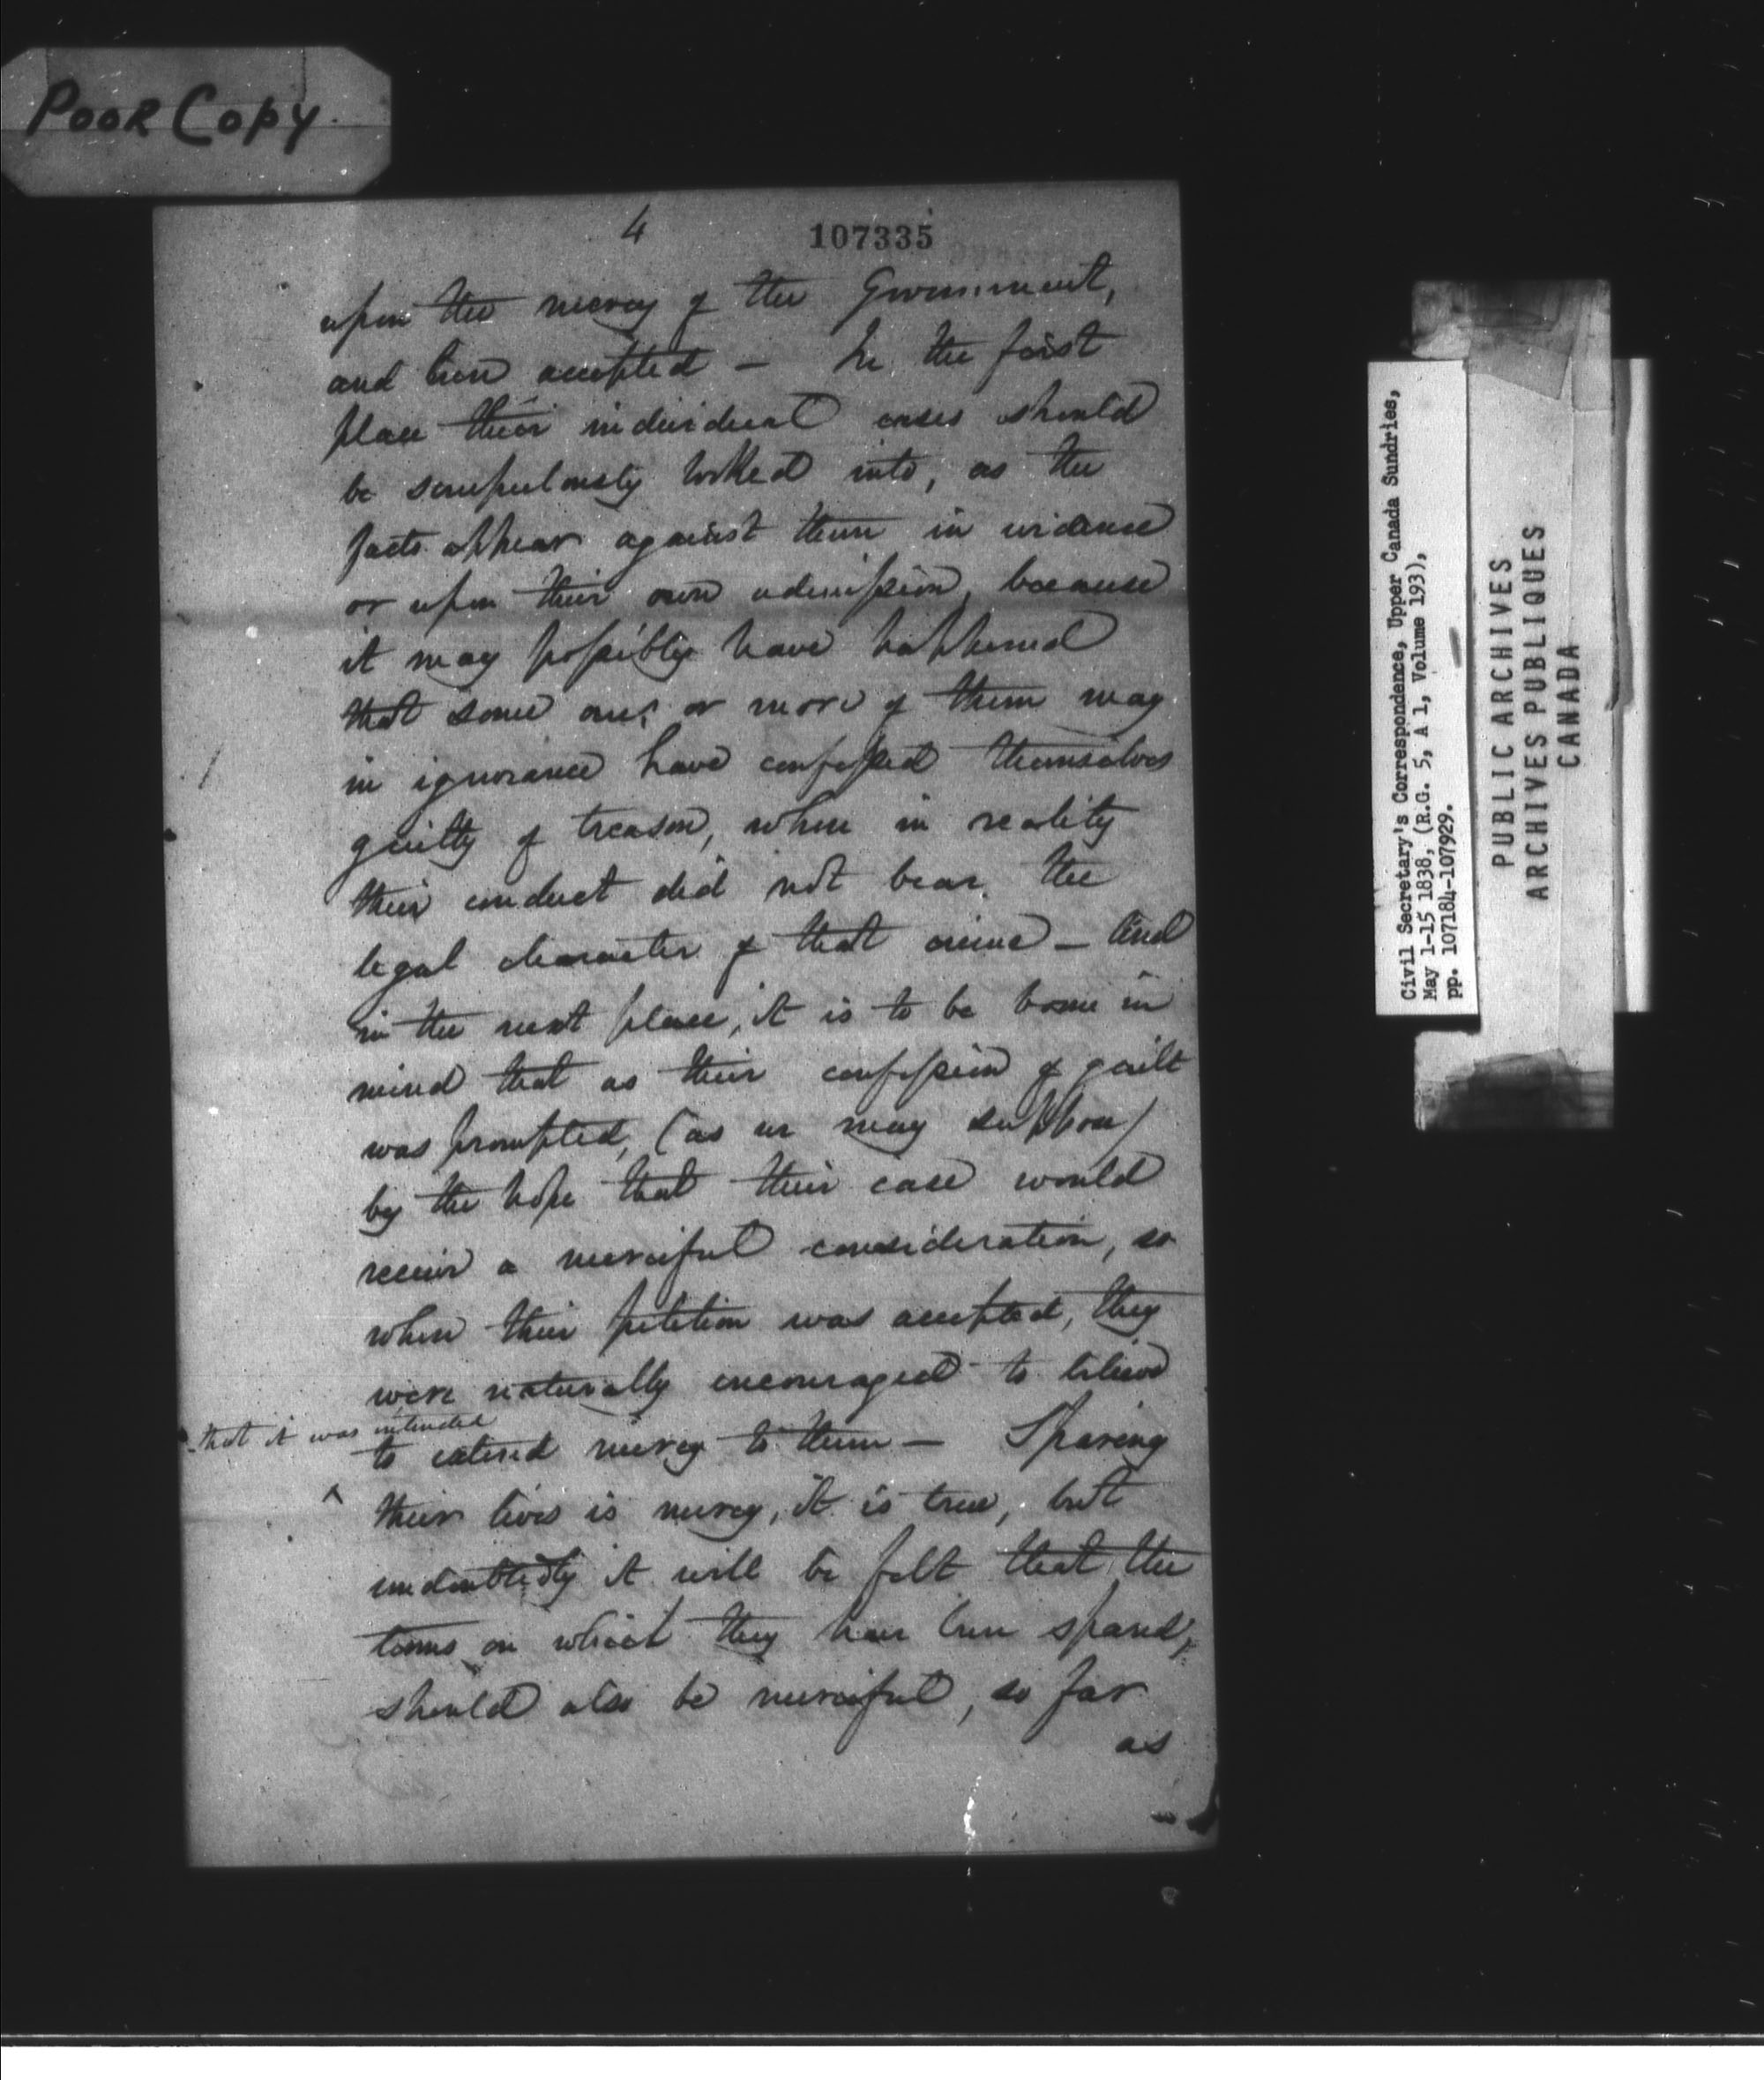 Poor Copy.
4
107335
upon the mercy of the Government,
and been accepted – In the first
place their individual cases should
be scrupulously looked into, as the
facts appear against them in evidence
or upon their own admission, because
it may possibly have happened
that some one, or more of them may
in ignorance have confessed themselves
guilty of treason, when in reality
their conduct did not bear the
legal character of that crime – And
in the next place, it is to be borne in
mind that as their confession of guilt
was prompted, (as we may suppose)
by the hope that their case would
receive a merciful consideration, so
when their petition was accepted, they
were naturally encouraged to believe
that it was intended
to extend mercy to them – Sparing
their lives is mercy, it is true, but
undoubtedly it will be felt that the
terms on which they have been spared,
should also be merciful, so far
as
Civil Secretary's Correspondence, Upper Canada Sundries,
May 1-15 1838, (R.G. 5, A 1, Volume 193),
pp. 107184-107929.
PUBLIC ARCHIVES
ARCHIVES PUBLIQUES
CANADA